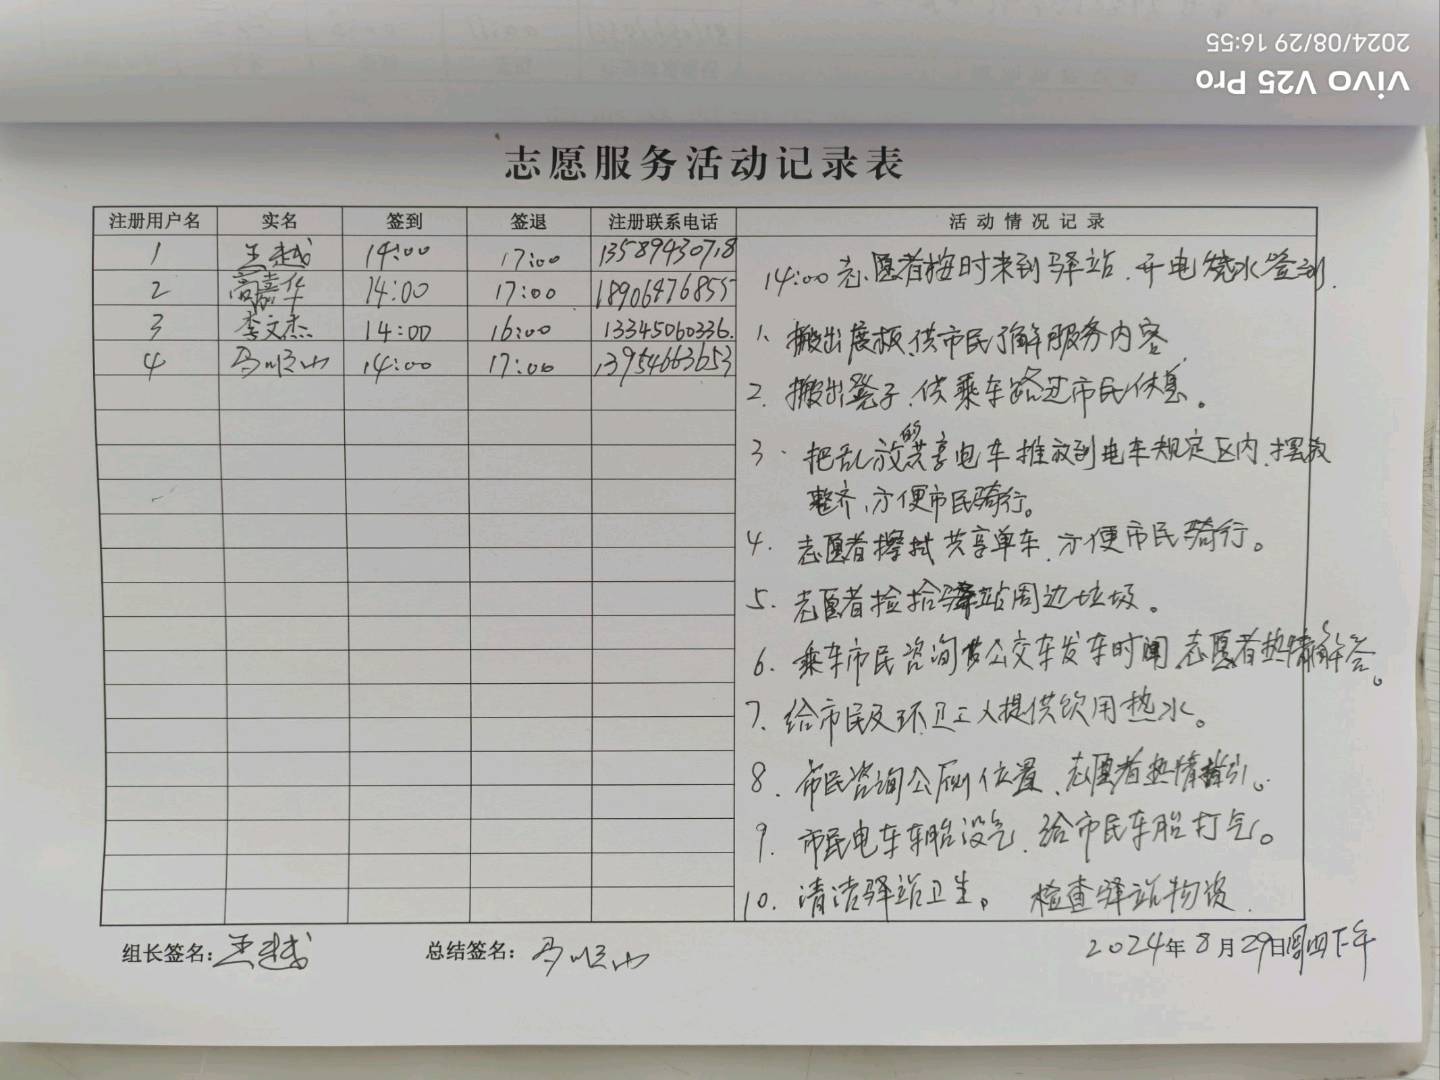 vivo V25 Pro
2024/08/29 16:55
志愿服务活动记录表
注册用户名 实名 签到 签退 注册联系电话 活动情况记录
1 王越 14:00 17:00 13589430718
2 高嘉华 14:00 17:00 18906476855
3 李文杰 14:00 16:00 13345060336.
4 马顺山 14:00 17:00 13954663653
14:00志愿者按时来到驿站.开电烧水签到.
1、搬出展板,供市民了解服务内容
2、搬出凳子,供乘车路过市民休息。
3、把乱放的共享电车推放到电车规定区内.摆放
整齐,方便市民骑行。
4.志愿者擦拭共享单车,方便市民骑行。
5.志愿者捡拾驿站周边垃圾。
6.乘车市民咨询公交车发车时间,志愿者热情解答。
7.给市民及环卫工人提供饮用热水。
8.市民咨询公厕位置,志愿者热情指引。
9.市民电车车胎没气,给市民车胎打气。
10.清洁驿站卫生。检查驿站物资.
组长签名:王越 总结签名:马顺山 2024年8月29日周四下午